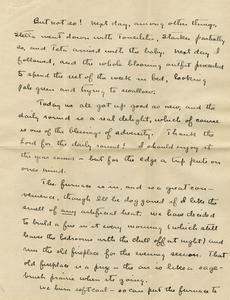 But not so! Next day, among other things,
went down with Tonsilitis, Starker partially
so, and Tata arrived with the baby. Next day I
followed, and the whole blooming outfit proceeded
to spend the rest of the week in bed, looking
pale green and trying to swallow.
Today we all got up good as new, and the
daily round is a real delight, which of course
is one of the blessings of adversity. Thank the
Lord for the daily round! I should enjoy it
the year round – but for the edge a trip puts on
ones mind.
The furnace is in, and is a great con-
venience, though I'll be dog goned if I like the
smell of any artificial heat. We have decided
to build a fire in it every morning (which still
leaves the bedrooms with the chill off at night) and
run the old fireplace for the evening session. That
old fireplace is a joy – the air is like a sage-
brush prairie when its going.
We burn soft coal – so can put the furnace to